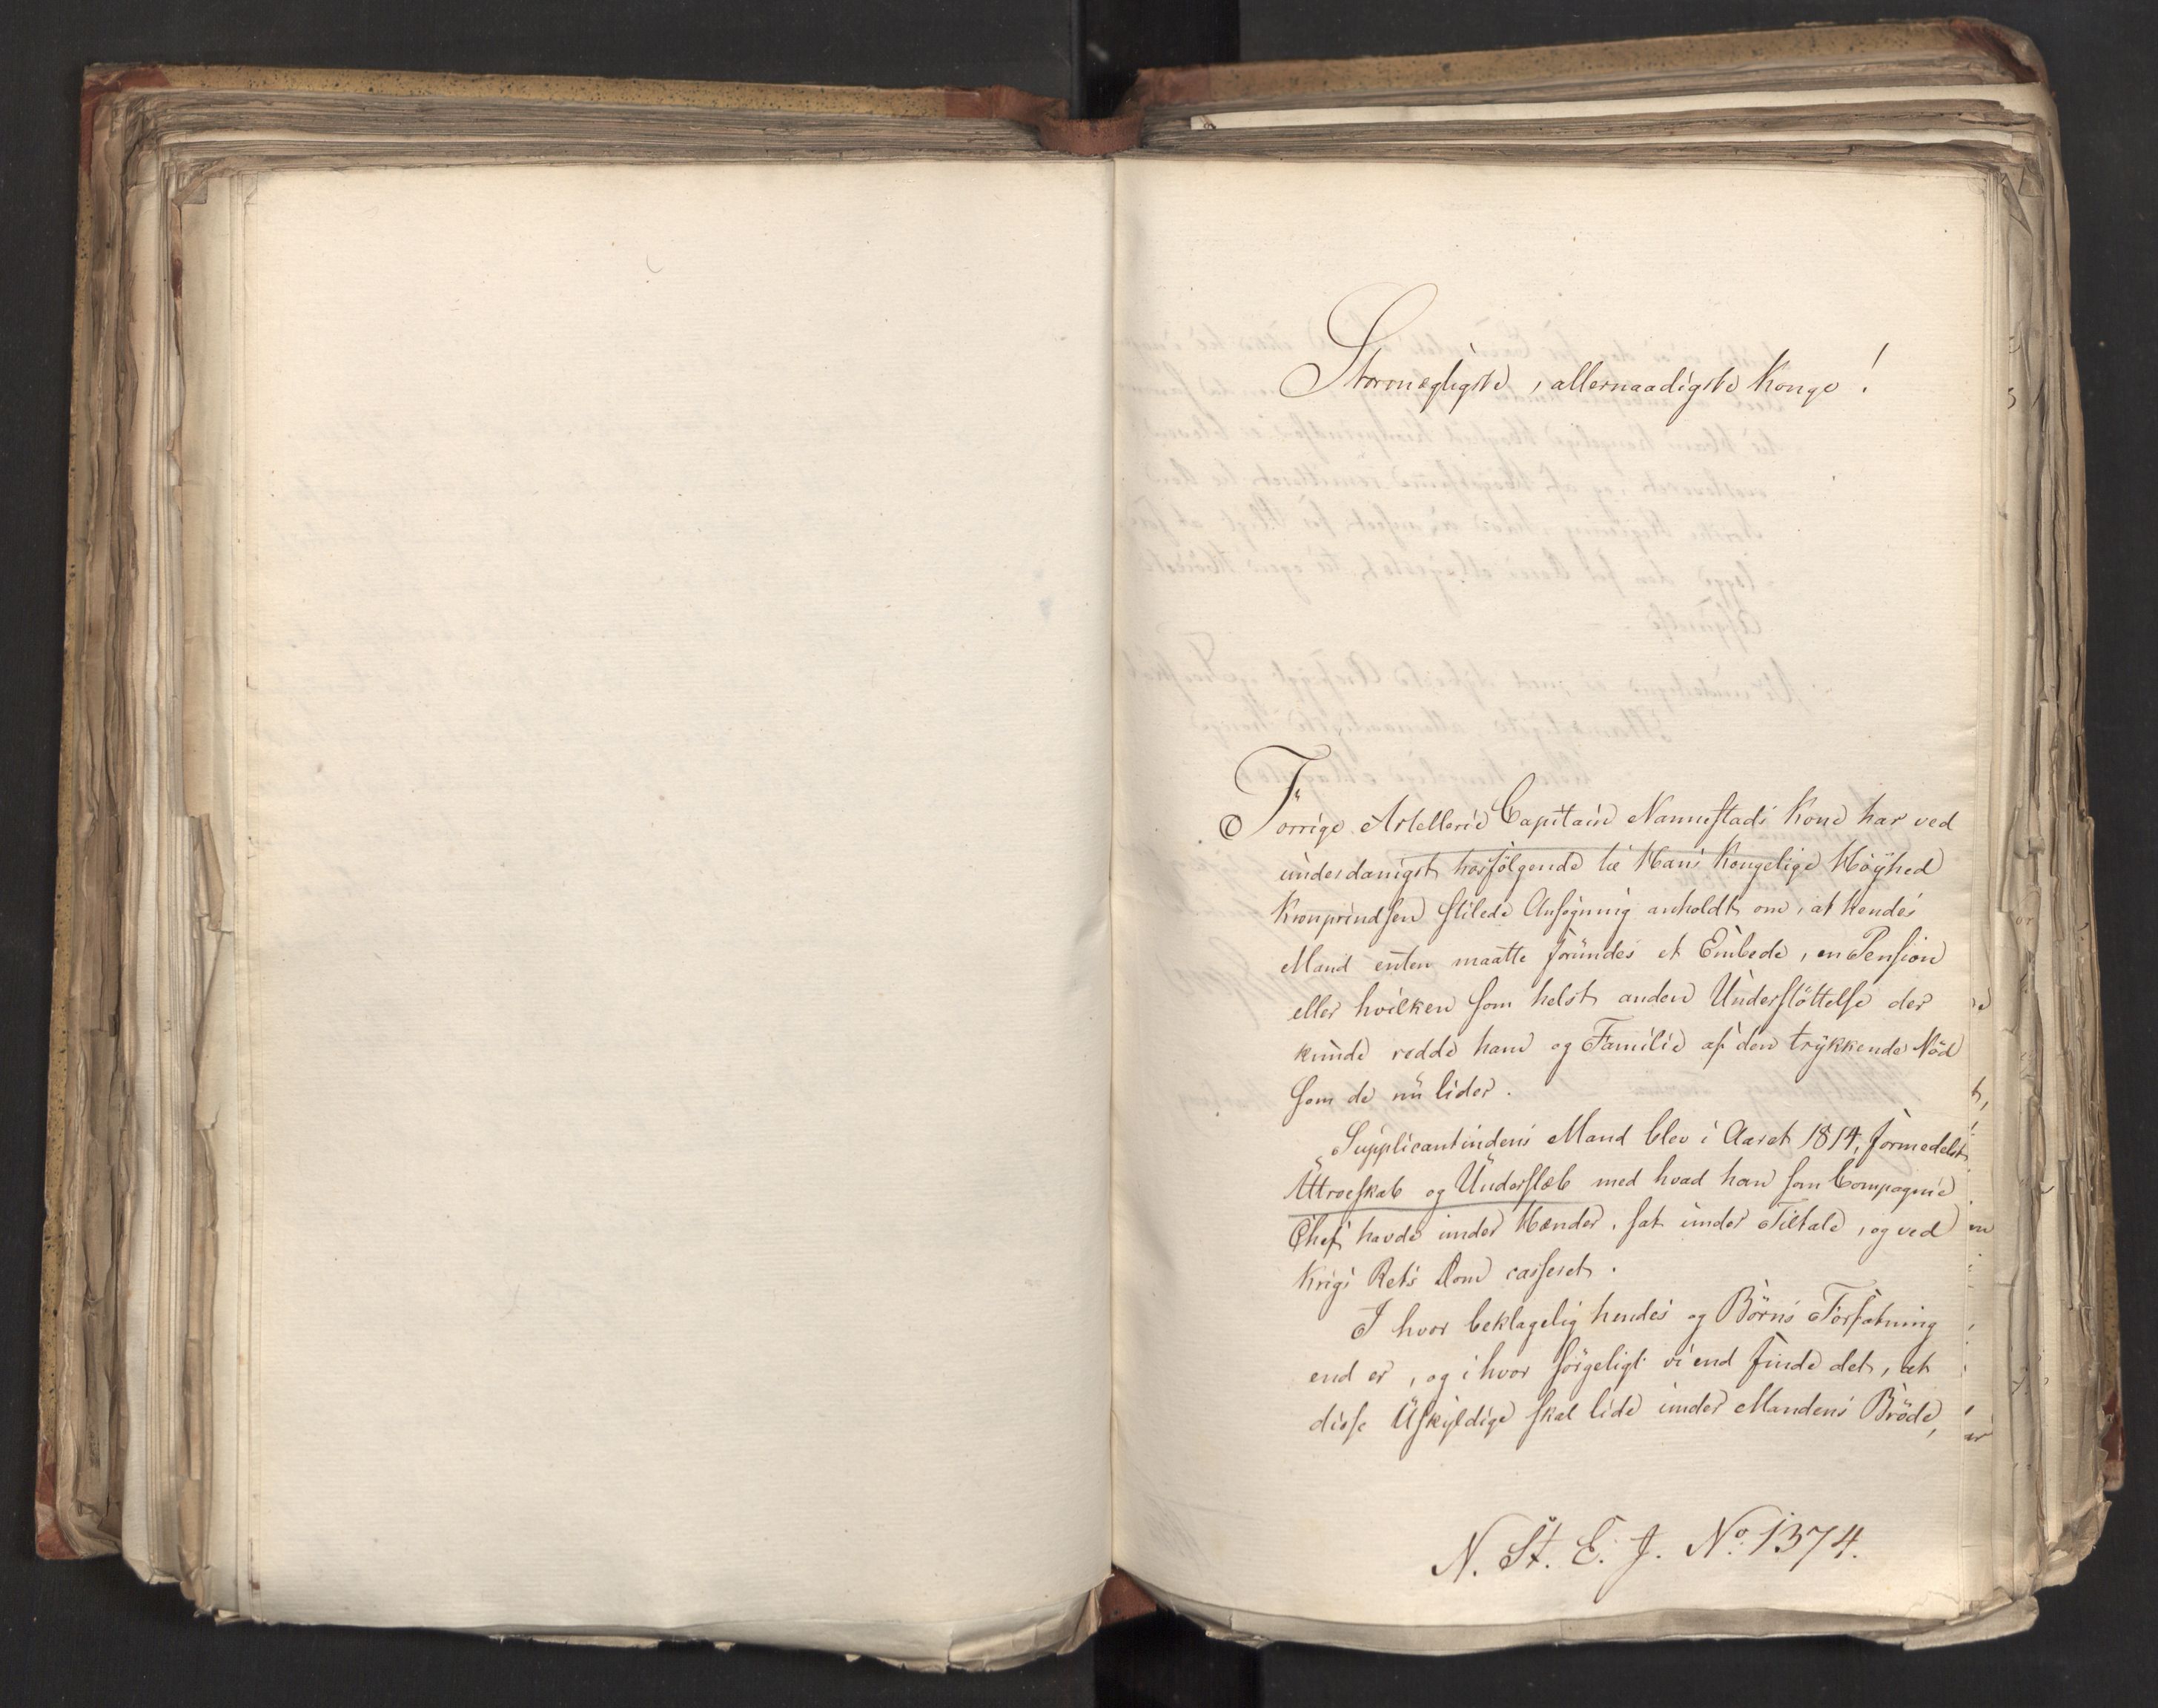 Stormægtigste, allernaadigste Konge!
Forrige Artellerie Capitain Nannestads Kone har ved
underdanigst hosfölgende til Hans Kongelige Höyhed
Kronprindsen stilede Ansögning anholdt om, at hendes
Mand enten maatte forundes et Embede, en Pension
eller hvilken som helst anden Understöttelse der
kunde redde ham og Familie af den trykkende Nöd
som de nu lider.
Supplicantindens Mand blev i Aaret 1814, formedelst
Utroeskab og Underslæb med hvad han som Compagnie
Chef havde under Hænder, sat under Tiltale, og ved
Krigs Rets Dom casseret.
I hvor beklagelig hendes og Börns Forfatning
end er, og i hvor sörgeligt vi end finde det, at
disse Uskyldige skal lide under Mandens Bröde,
N. St. E. J. No. 1374.